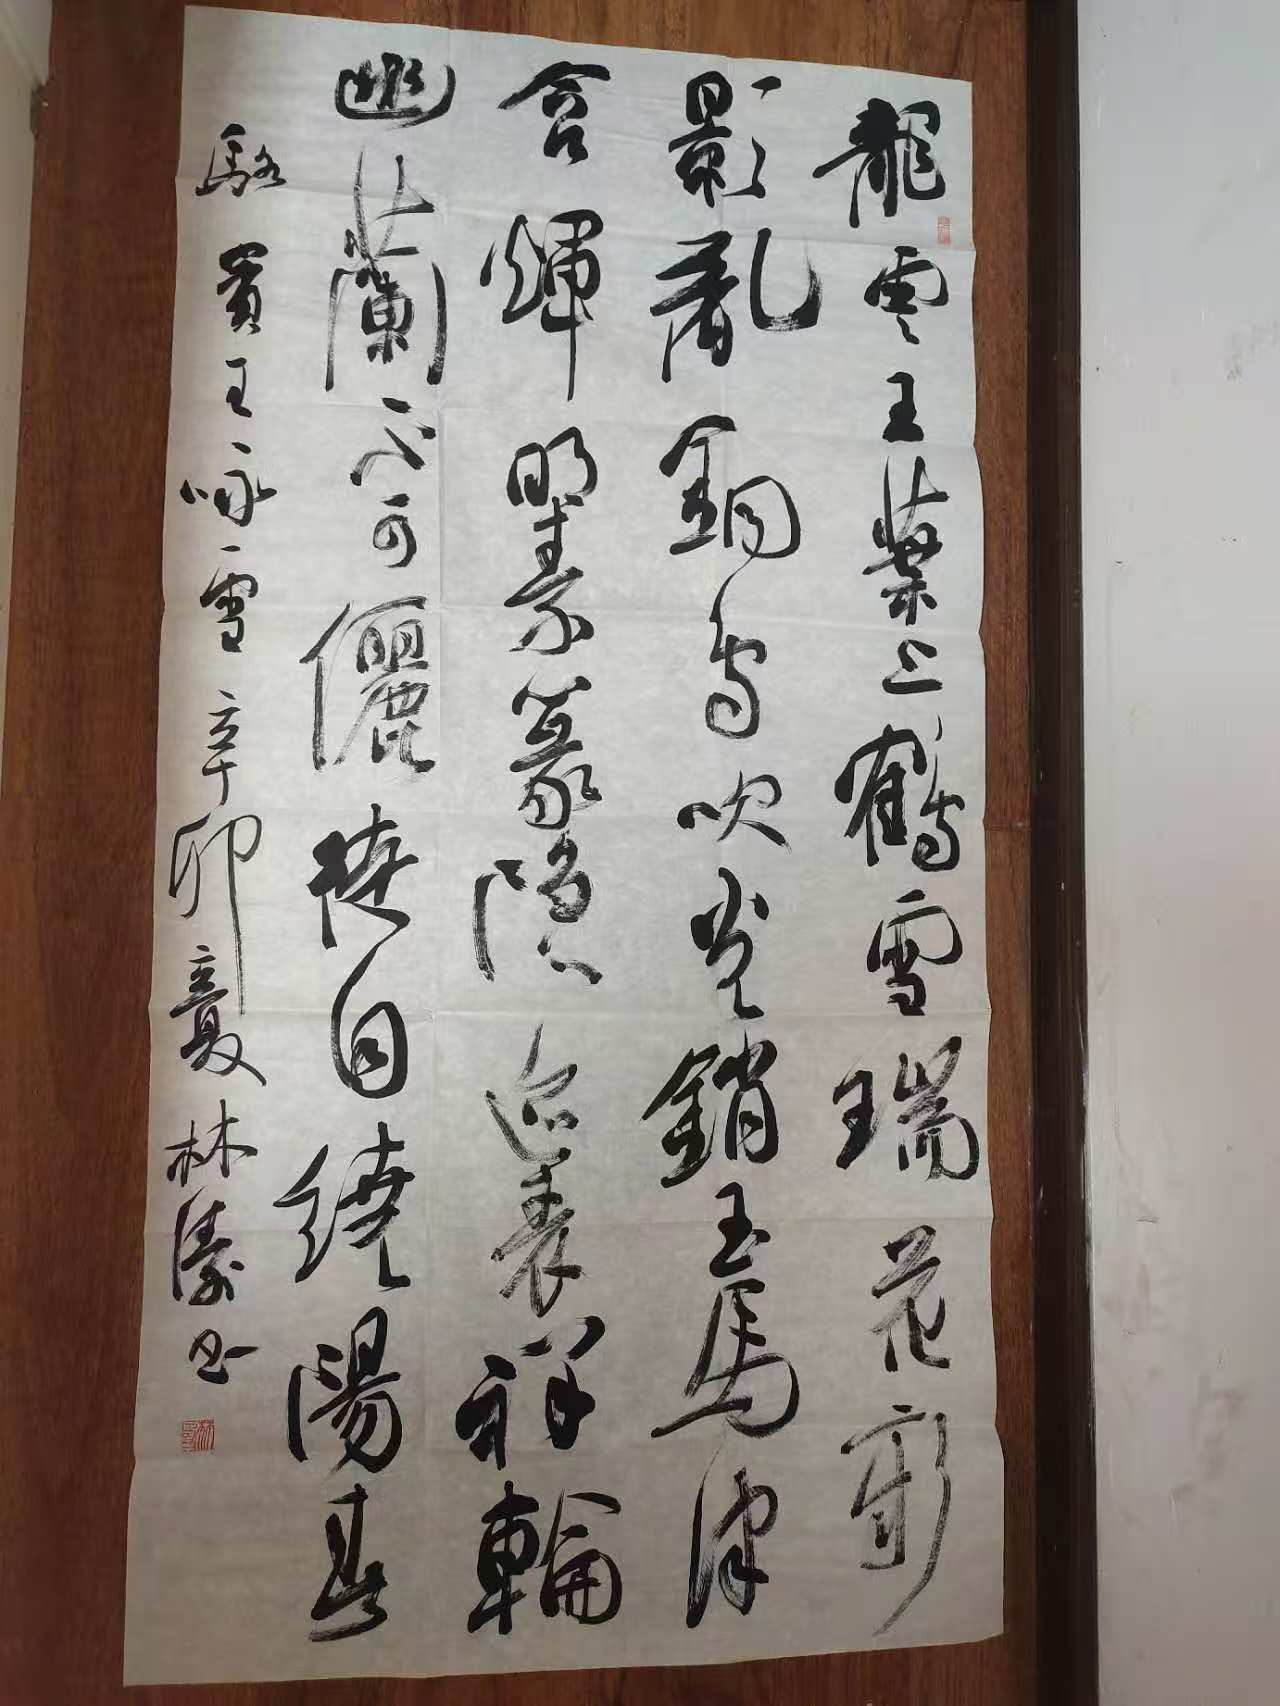 龍雲玉葉上鶴雪瑞花新
影亂銅烏吹光銷玉馬津
含輝明素篆隱迹表祥輪
幽蘭不可儷徒自繞陽春
駱賓王咏雪辛卯夏林濤书